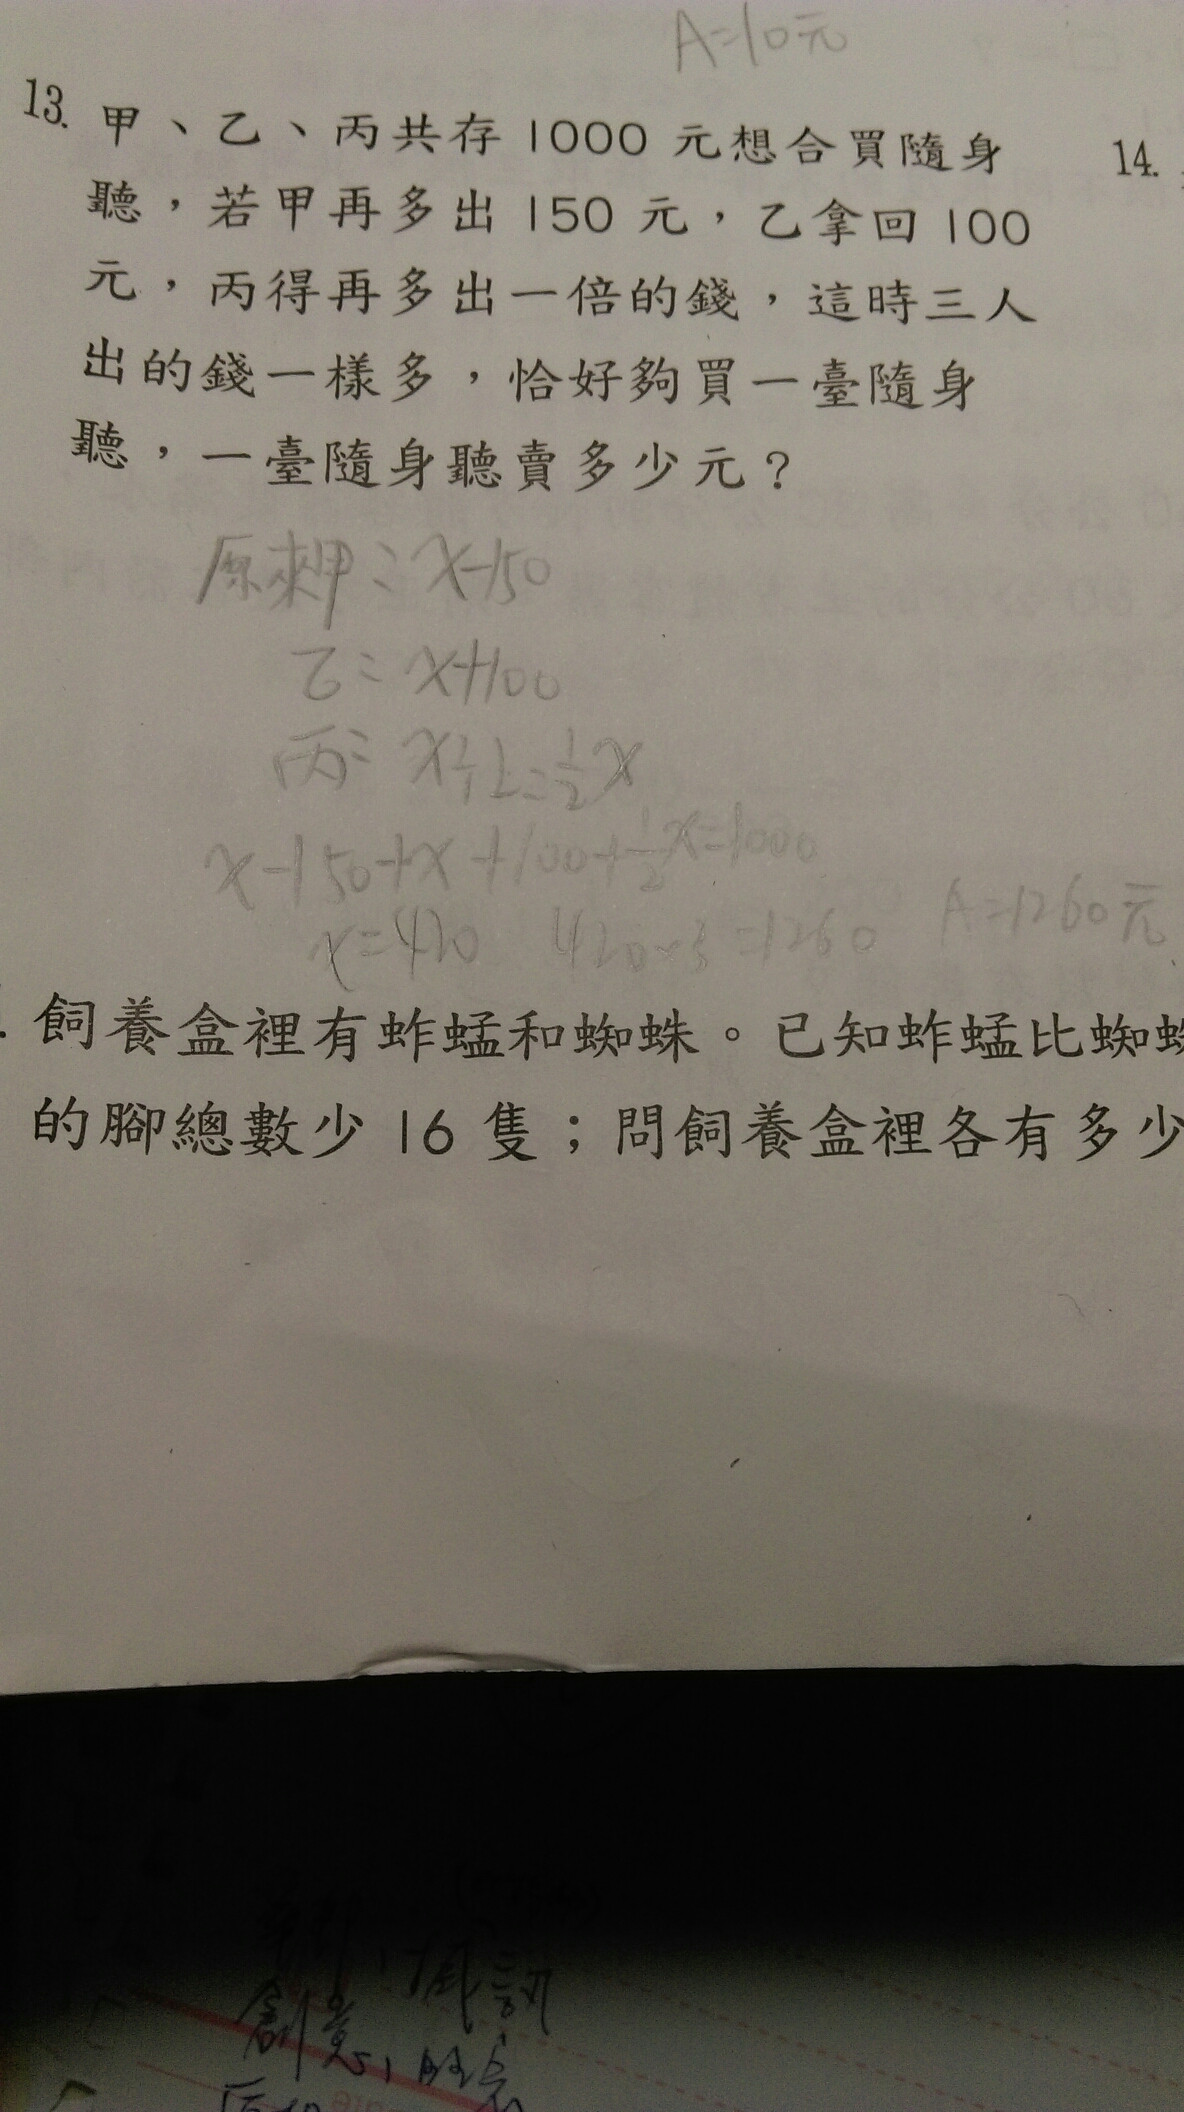 A=10元
13. 甲、乙、丙共存1000元想合買隨身
14.
聽，若甲再多出150元，乙拿回100
元，丙得再多出一倍的錢，這時三人
出的錢一樣多，恰好夠買一臺隨身
聽，一臺隨身聽賣多少元？
原來甲=x-150
乙=x+100
x-150+x+100+1/2x=1000
x=420 420×3=1260 A=1260元
飼養盒裡有蚱蜢和蜘蛛。已知蚱蜢比蜘蛛
的腳總數少16隻；問飼養盒裡各有多少
創意